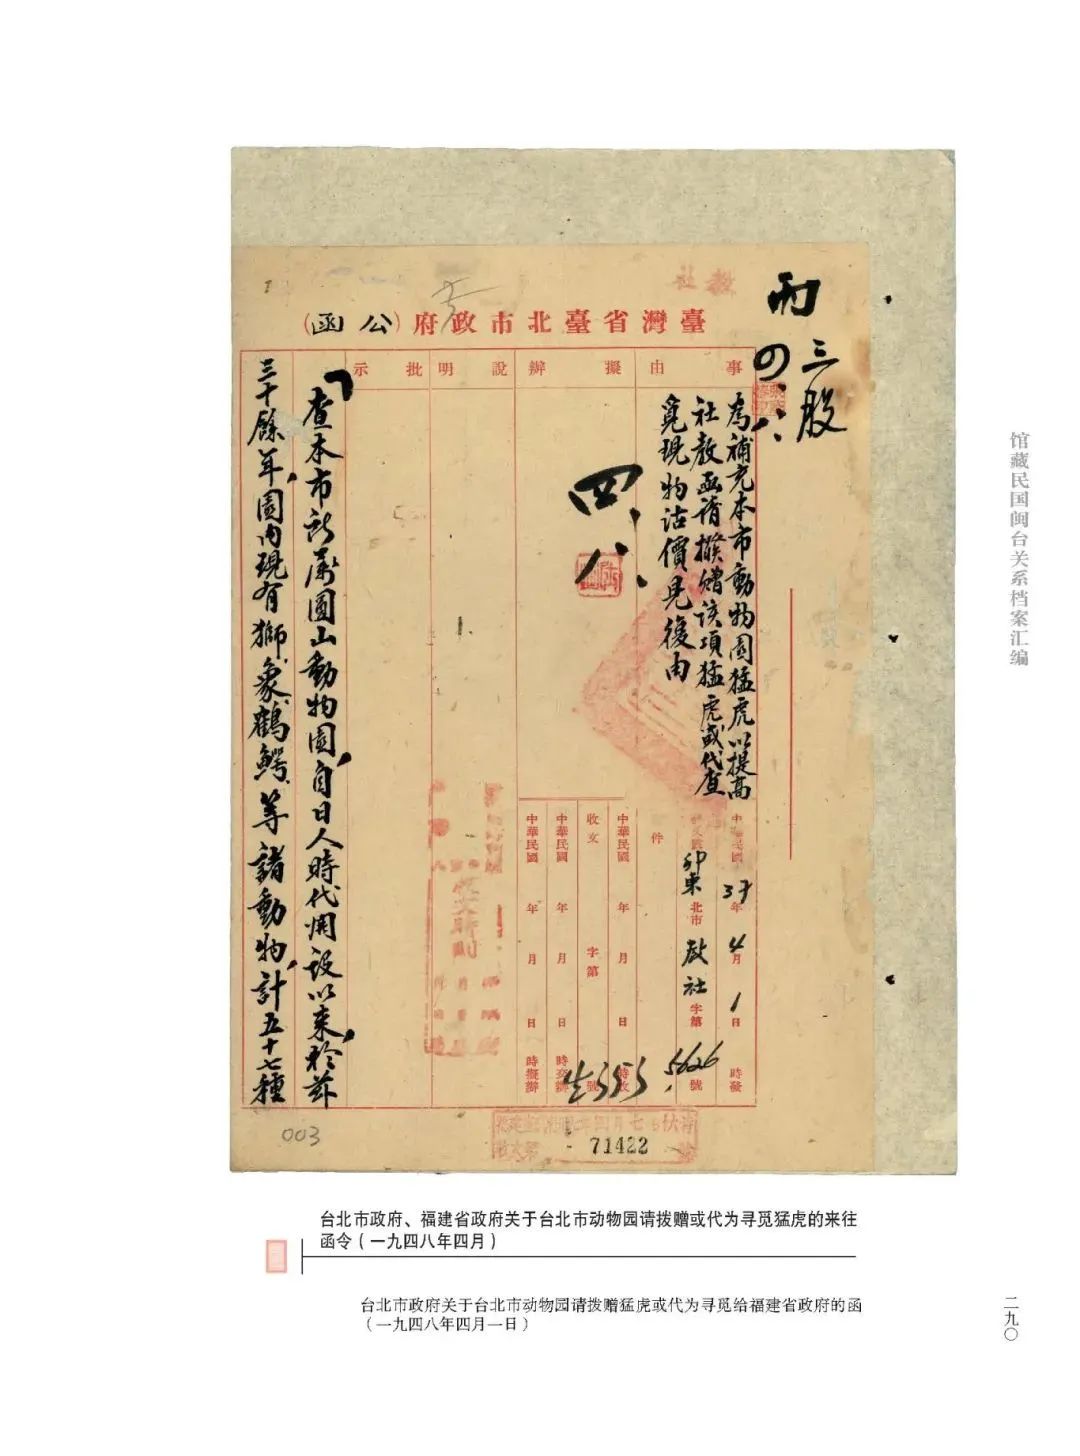 臺灣省臺北市政府(公函)
事由
擬辦
說明
批示
為補充本市動物園猛虎以提高
社教函請撥贈該項猛虎或代查
覓現物沽價見後由
三股
四、八、
四、八、
中華民國37年4月1日 時發
卯東北市教社字第5626號
件
中華民國 年 月 日 時收
收文 字第 號
中華民國 年 月 日 時交辦
中華民國 年 月 日 時擬辦
查本市所屬圓山動物園,自日人時代開設以來,於茲
三十餘年,園內現有獅、象、鶴、鱷、等諸動物,計五十七種
71422
003
馆藏民国闽台关系档案汇编
台北市政府、福建省政府关于台北市动物园请拨赠或代为寻觅猛虎的来往
函令(一九四八年四月)
台北市政府关于台北市动物园请拨赠猛虎或代为寻觅给福建省政府的函
(一九四八年四月一日)
二九〇